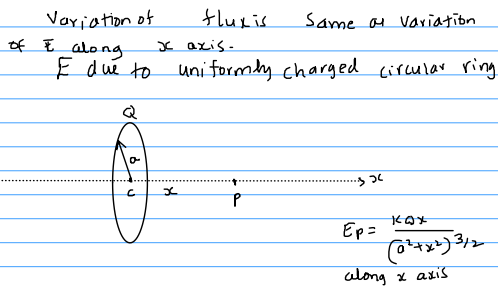 Variation of flux is same as variation
of E along x axis.
E due to uniformly charged circular ring
Q
a
C x P x
Ep = KQx / (a²+x²)^3/2
along x axis